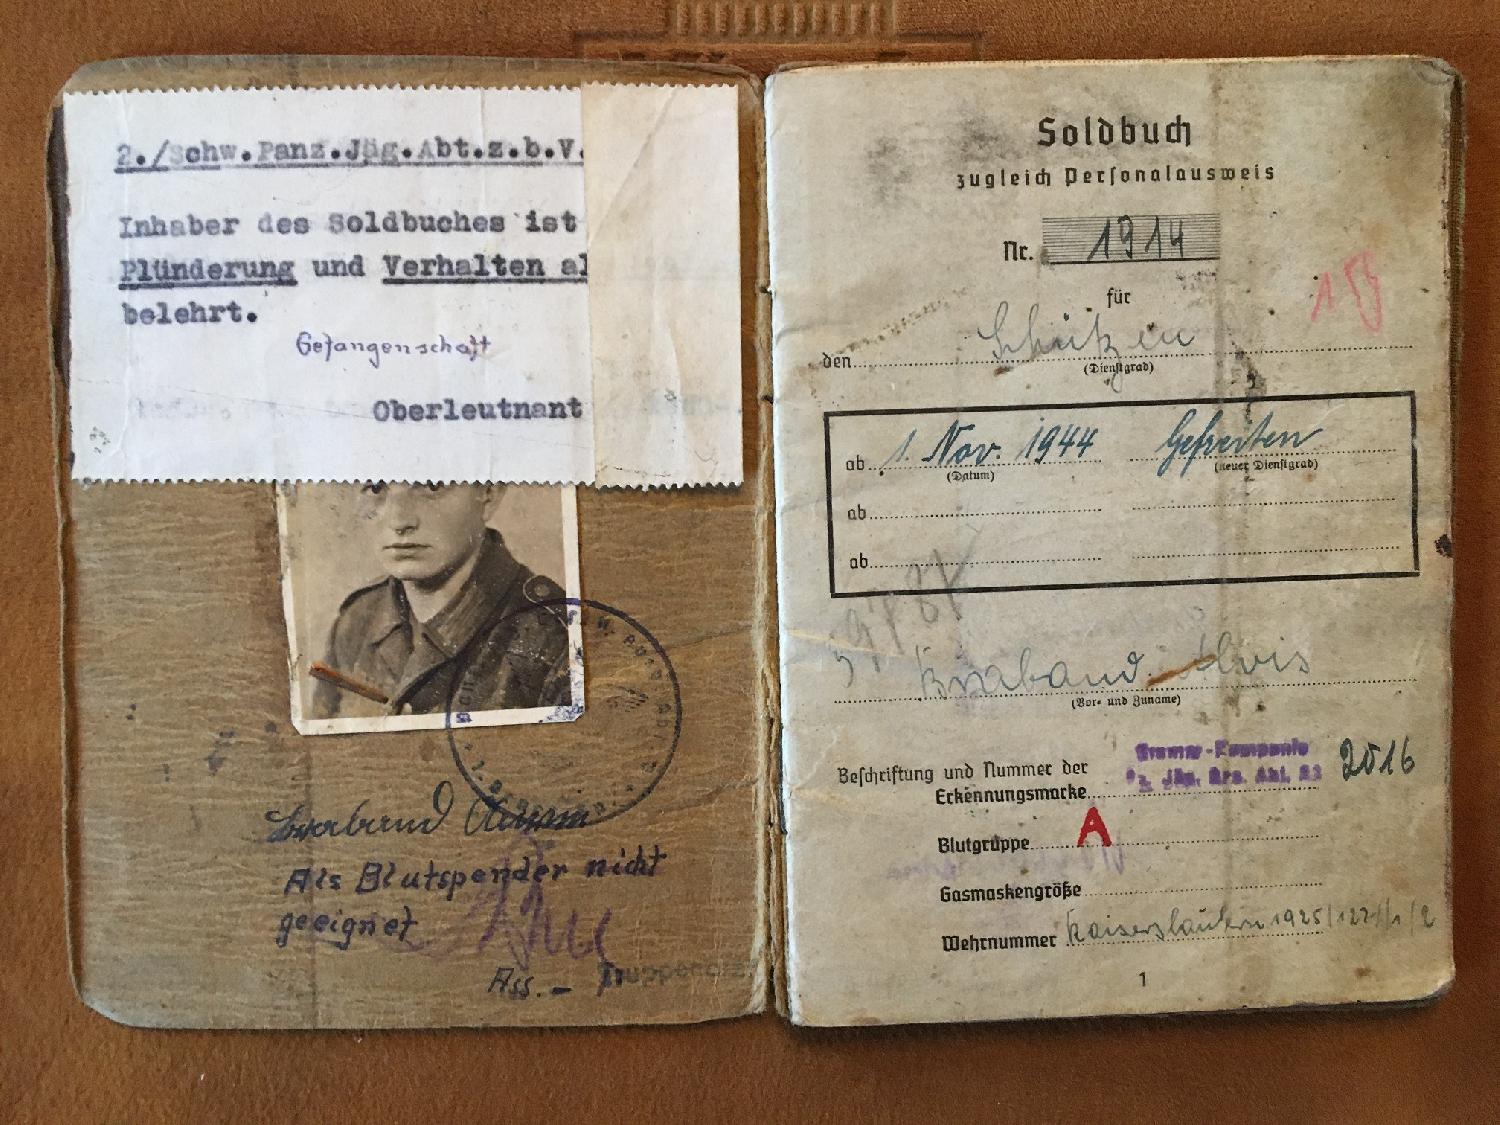 2./Schw.Panz.Jäg.Abt.z.b.V.
Inhaber des Soldbuches ist
Plünderung und Verhalten al
belehrt.
Gefangenschaft
Oberleutnant
Als Blutspender nicht
geeignet
Ass. - Truppenarzt
Soldbuch
zugleich Personalausweis
Nr. 1914
für
den Schützen
(Dienstgrad)
ab 1. Nov. 1944 Gefreiten
(Datum) (neuer Dienstgrad)
ab
ab
Braband Alois
(Vor- und Zuname)
Beschriftung und Nummer der
Erkennungsmarke
Stamm-Kompanie
Pz. Jäg. Ers. Abt. 33 2016
Blutgruppe A
Gasmaskengröße
Wehrnummer Kaiserslautern 1925/
1